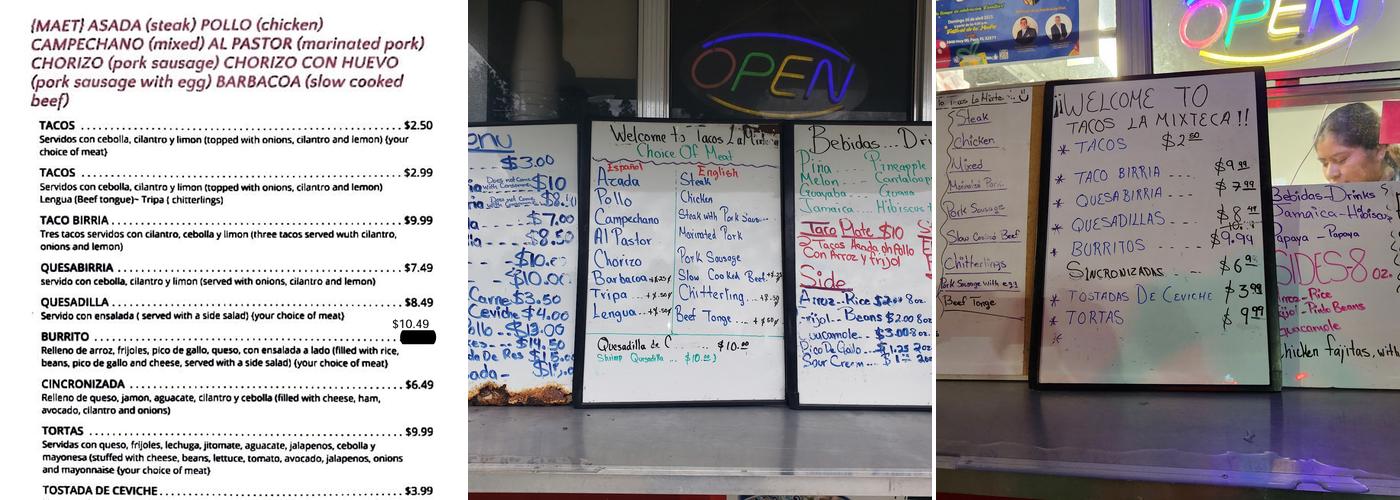 {MAET} ASADA (steak) POLLO (chicken)
CAMPECHANO (mixed) AL PASTOR (marinated pork)
CHORIZO (pork sausage) CHORIZO CON HUEVO
(pork sausage with egg) BARBACOA (slow cooked
beef)
TACOS $2.50
Servidos con cebolla, cilantro y limon (topped with onions, cilantro and lemon) {your
choice of meat}
TACOS $2.99
Servidos con cebolla, cilantro y limon (topped with onions, cilantro and lemon)
Lengua (Beef tongue)~ Tripa ( chitterlings)
TACO BIRRIA $9.99
Tres tacos servidos con cilantro, cebolla y limon (three tacos served wuth cilantro,
onions and lemon)
QUESABIRRIA $7.49
servido con cebolla, cilantro y limon (served with onions, cilantro and lemon)
QUESADILLA $8.49
Servido con ensalada ( served with a side salad) {your choice of meat}
$10.49
BURRITO
Relleno de arroz, frijoles, pico de gallo, queso, con ensalada a lado (filled with rice,
beans, pico de gallo and cheese, served with a side salad) {your choice of meat}
CINCRONIZADA $6.49
Relleno de queso, jamon, aguacate, cilantro y cebolla (filled with cheese, ham,
avocado, cilantro and onions)
TORTAS $9.99
Servidas con queso, frijoles, lechuga, jitomate, aguacate, jalapenos, cebolla y
mayonesa (stuffed with cheese, beans, lettuce, tomato, avocado, jalapenos, onions
and mayonnaise {your choice of meat}
TOSTADA DE CEVICHE $3.99
OPEN
enu
$3.00
Does not come with Consome $10
Does not come with Consome
$7.00
$8.50
$10.00
Carne $3.50
Ceviche $4.00
$13.00
$14.50
da De Res
Welcome to Tacos La Mixteca
Choice Of Meat
Español English
Azada Steak
Pollo Chicken
Campechano Steak with Pork
Al Pastor Marinated Pork
Chorizo Pork Sausage
Barbacoa Slow Cooked Beef
Tripa Chitterling
Lengua Beef Tonge
Quesadilla de C $10.00
Shrimp Quesadilla $10.00
Bebidas... Dri
Piña Pineapple
Melon Cantaloupe
Guayaba Guava
Jamaica Hibiscus
Taco Plate $10
2-Tacos Asada oh Pollo
Con Arroz y frijol
Side
Arroz-Rice $2.00 8oz.
Frijol-Beans $2.00 8oz
Guacamole $3.00 8oz
Pico De Gallo $1.25 2oz
Sour Crerm
OPEN
Steak
Chicken
Mixed
Marinated Pork
Pork Sausage
Slow Cooked Beef
Chitterlings
Pork Sausage with egg
Beef Tonge
¡¡WELCOME TO
TACOS LA MIXTECA!!
* TACOS $2.50
* TACO BIRRIA $9.99
* QUESABIRRIA $7.99
* QUESADILLAS $8.49
* BURRITOS $9.99
SINCRONIZADAS $6.99
* TOSTADAS DE CEVICHE $3.99
* TORTAS $9.99
*
Bebidas-Drinks
Jamaica-Hibiscu
Papaya-Papaya
SIDES-8 oz.
Arroz-Rice
Frijol-Pinto Beans
Guacamole
Chicken fajitas, with